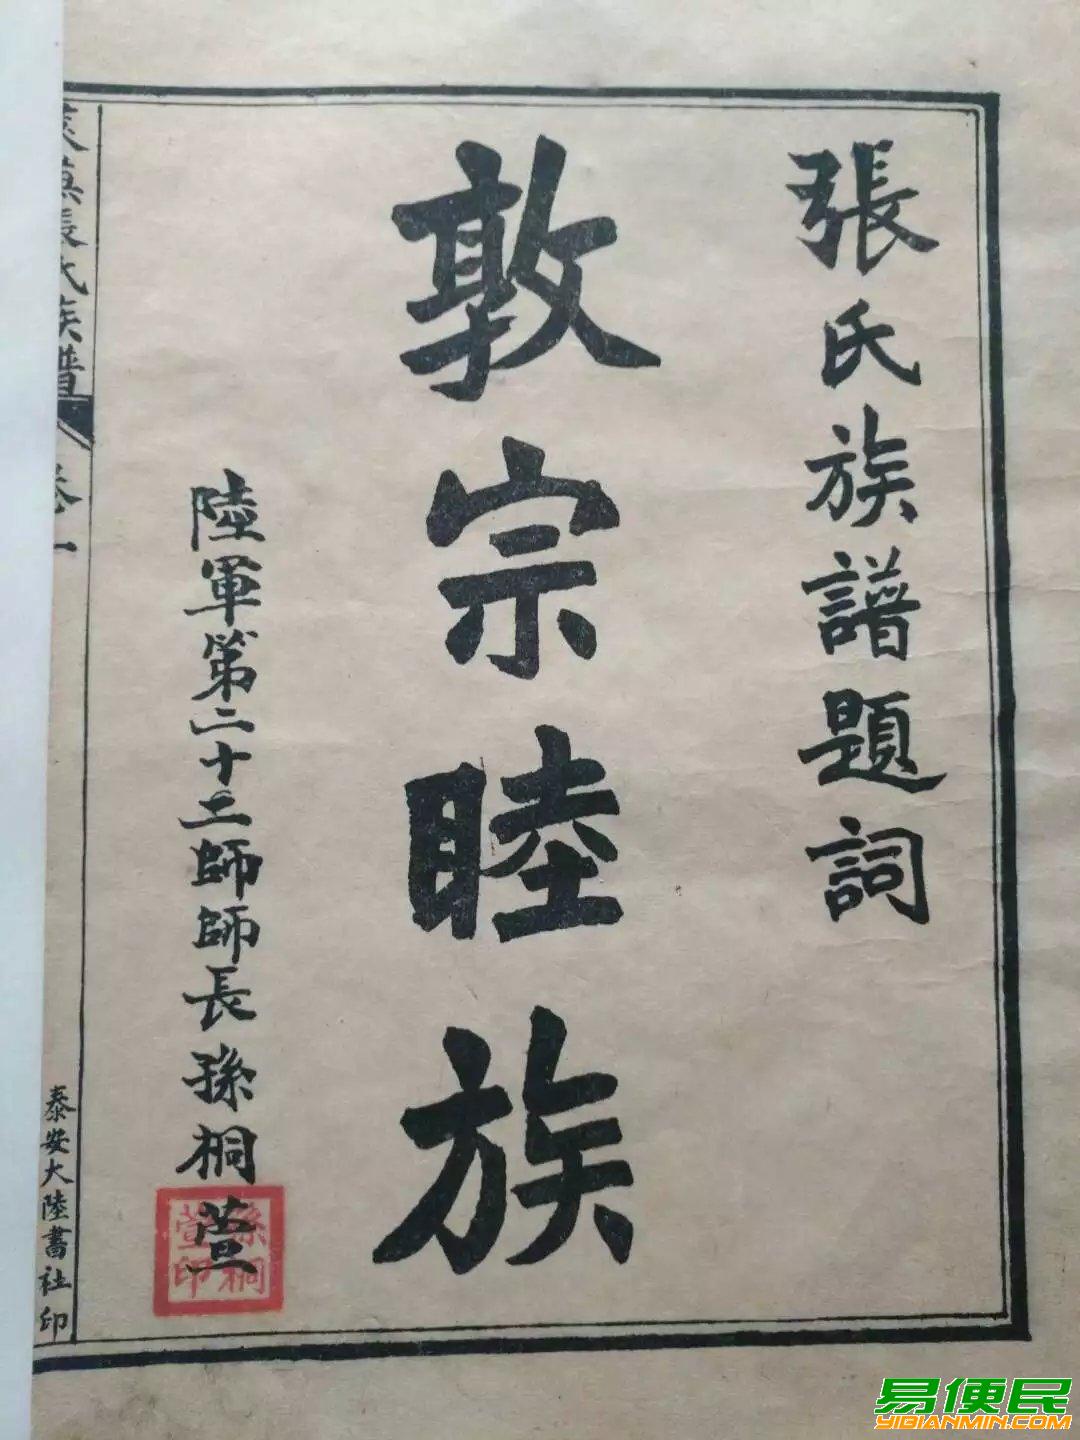 張氏族譜題詞
敦宗睦族
陸軍第二十二師師長孫桐萱
孫桐
萱印
萊蕪張氏族譜
卷一
泰安大陸書社印
易便民
YIBIANMIN.COM